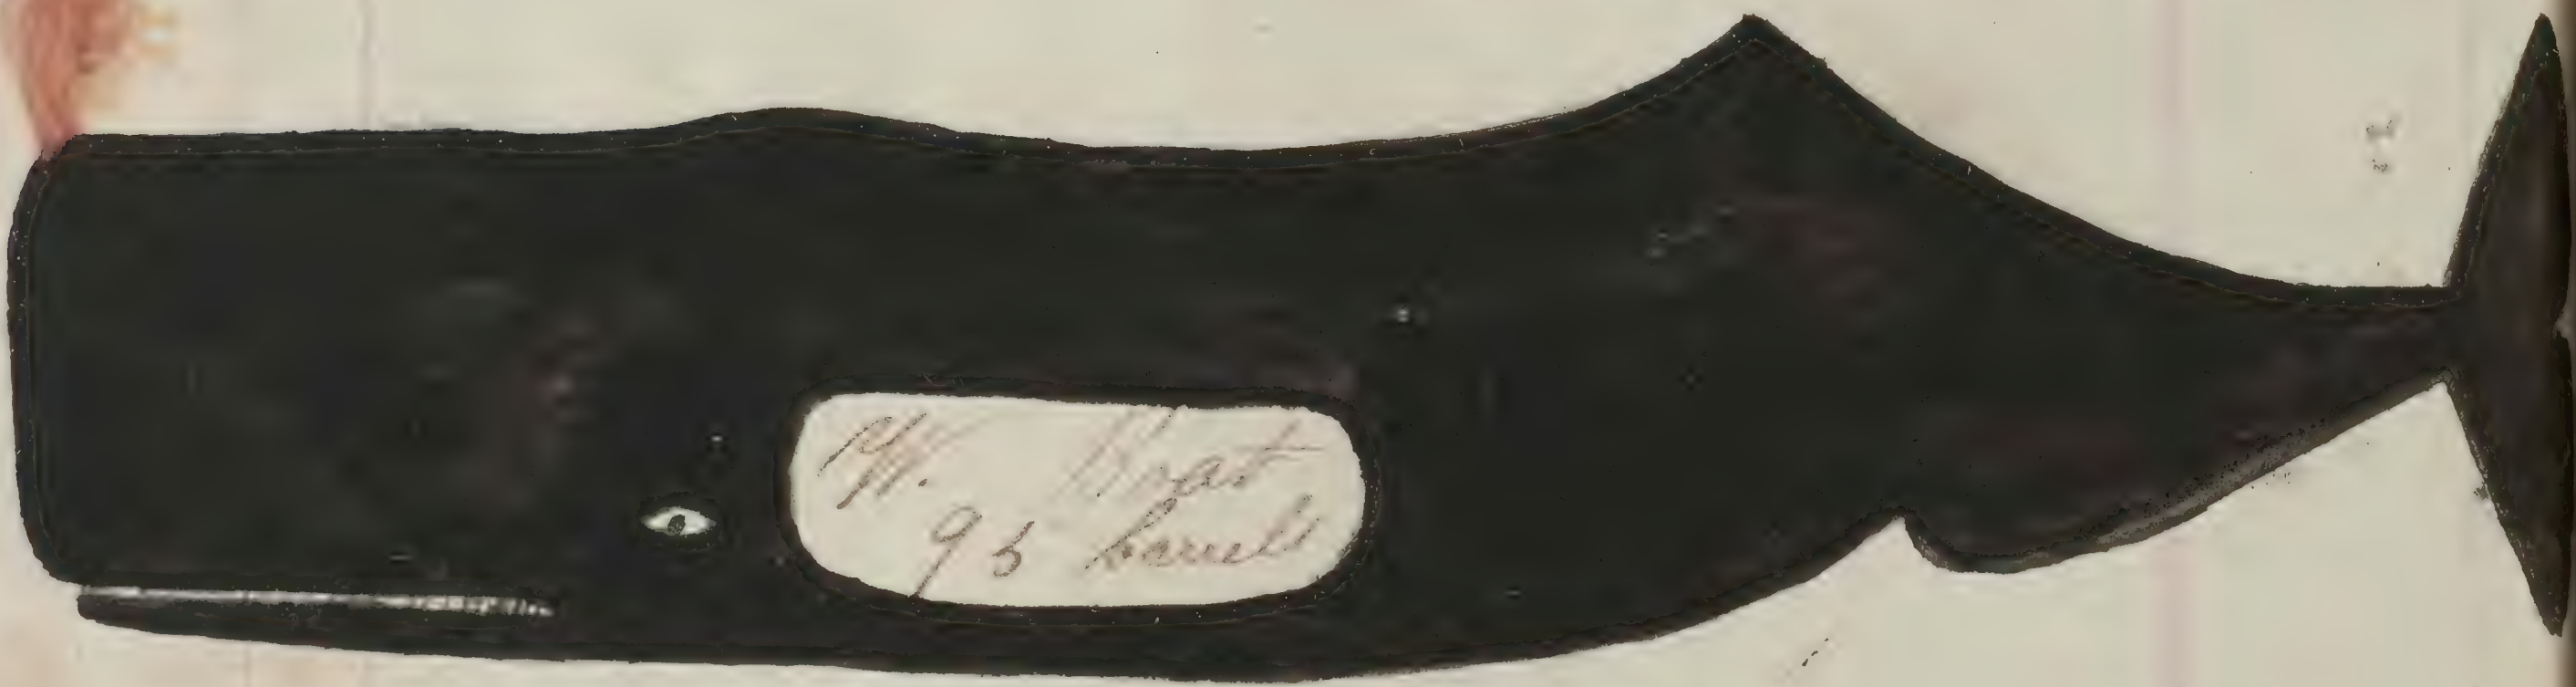 W. Boat
95 barrels